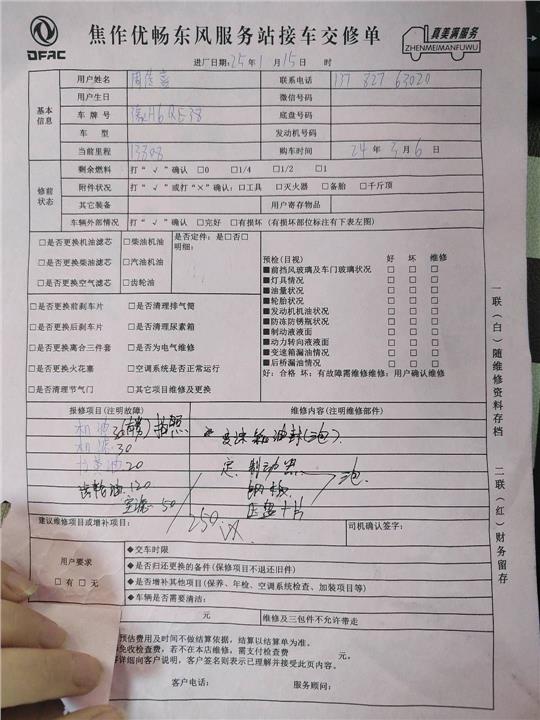 DFAC
焦作优畅东风服务站接车交修单
真美满服务
ZHENMEIMANFUWU
进厂日期:25年1月15日 时
基本信息
用户姓名 联系电话 137 827 63020
用户生日 微信号码
车牌号 底盘号码
车型 发动机号码
当前里程 13808 购车时间 24年3月6日
修前状态
剩余燃料 打“√”确认 □0 □1/4 □1/2 □1
附件状况 打“√”或打“×”确认:□工具 □灭火器 □备胎 □千斤顶
其它装备 用户寄存物品
车辆外部情况 打“√”确认 □完好 □有损坏(有损坏部位标注有下表左图)
□是否更换机油滤芯 □柴油机油 是否定件:是□否□
明细:
□是否更换柴油滤芯 □汽油机油
□是否更换空气滤芯 □齿轮油
□是否更换前刹车片 □是否清理排气筒
□是否更换后刹车片 □是否清理尿素箱
□是否更换离合三件套 □是否为电气维修
□是否更换火花塞 □空调系统是否正常运行
□是否清理节气门 □其它项目维修及更换
预检(目视) 好 坏 维修
■前挡风玻璃及车门玻璃状况 □ □ □
■灯具情况 □ □ □
■油量状况 □ □ □
■轮胎状况 □ □ □
■发动机机油状况 □ □ □
■防冻防锈瓶状况 □ □ □
■制动液液面 □ □ □
■动力转向液液面 □ □ □
■变速箱漏油情况 □ □ □
■后桥漏油情况 □ □ □
好:合格 坏:有故障需维修维修:用户确认维修
报修项目(注明故障) 维修内容(注明维修部件)
机油 拍照 变速箱油封(泡)
机滤 30
20 定
齿轮油 120 钢板 泡
空滤 50
250
建议维修项目或增补项目: 司机确认签字:
用户要求
□有□无
◆交车时限
◆是否归还更换的备件(保修项目不退还旧件)
◆是否增补其他项目(保养、年检、空调系统检查、加装项目等)
◆车辆是否需要清洁:
元 维修及三包件不允许带走
预估费用及时间不做结算依据,结算以结算单为准。
免收检查费,若不在本店维修,需支付检查费 元,
详细向客户说明,客户签名则表示已理解并接受此页内容。
客户电话: 服务顾问:
一联(白)随维修资料存档
二联(红)财务留存